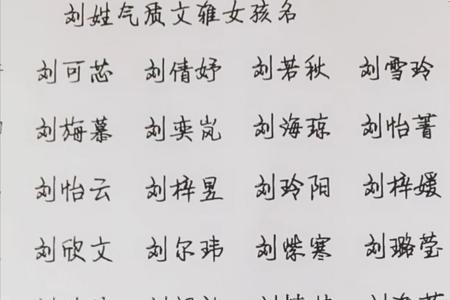 刘姓气质文雅女孩名
刘可芯 刘倩妤 刘若秋 刘雪玲
刘梅慕 刘奕岚 刘海琼 刘怡菁
刘怡云 刘梓昱 刘玲阳 刘梓媛
刘欣文 刘尔玮 刘紫寒 刘璐莹